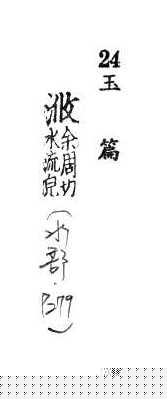 24
玉篇
浟
余周切
水流皃
(水部·